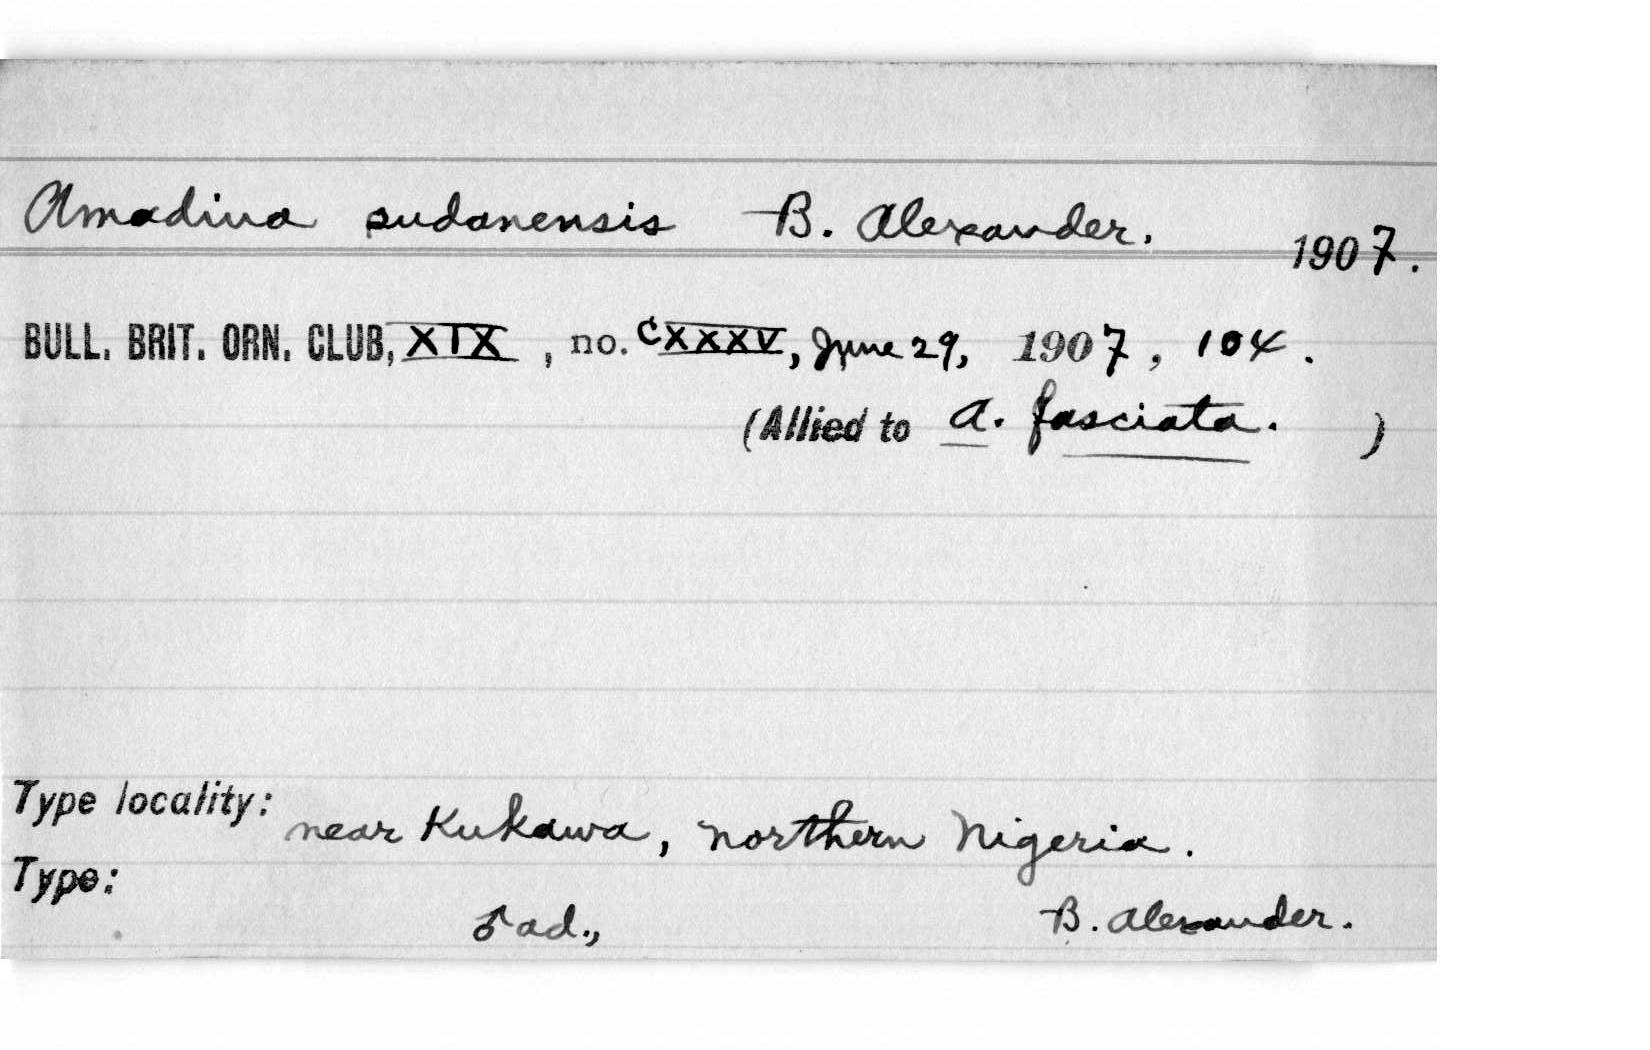 Amadina sudanensis B. Alexander. 1907.
BULL. BRIT. ORN. CLUB, XIX, no. CXXXV, June 29, 1907, 104.
(Allied to A. fasciata. )
Type locality: near Kukawa, northern Nigeria.
Type:
♂ ad., B. Alexander.